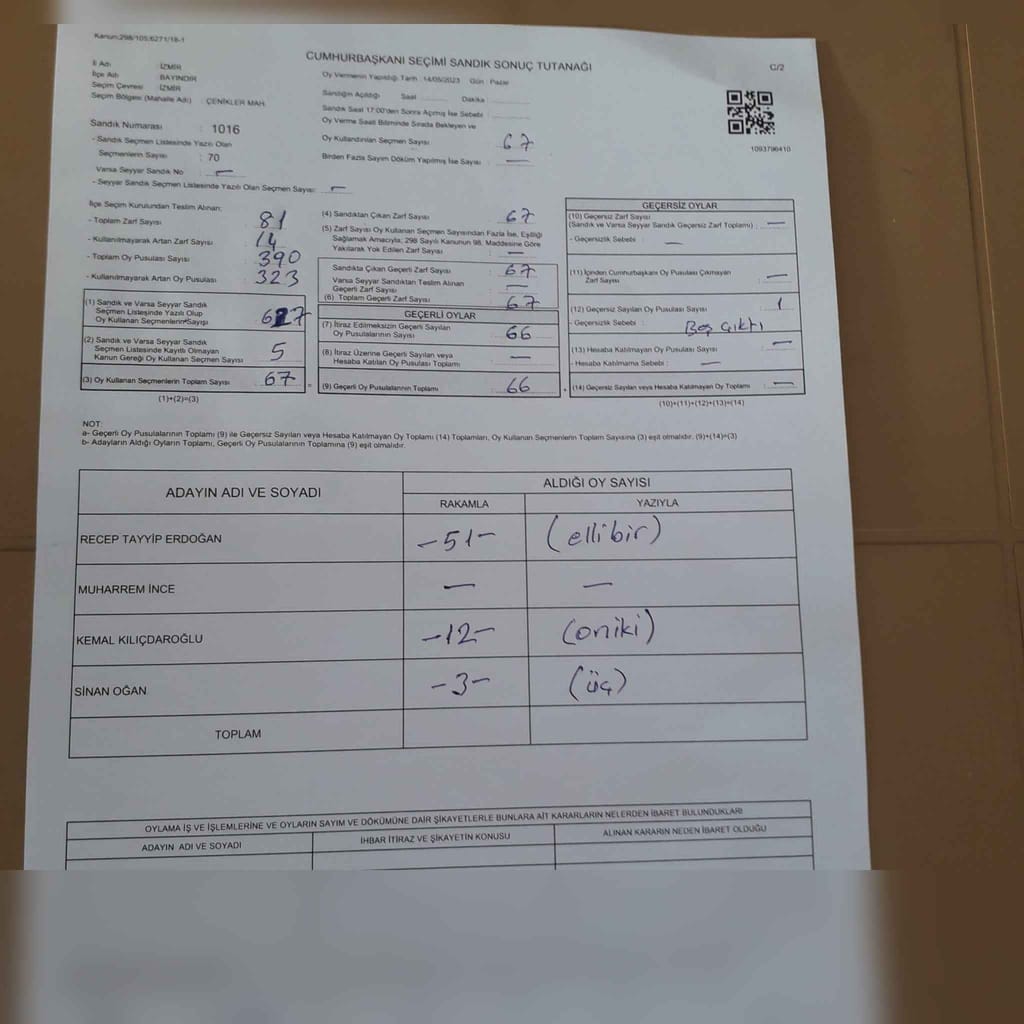 Kanun:298/105;6271/18-1
CUMHURBAŞKANI SEÇİMİ SANDIK SONUÇ TUTANAĞI
C/2
İl Adı : İZMİR
İlçe Adı : BAYINDIR
Seçim Çevresi : İZMİR
Seçim Bölgesi (Mahalle Adı) : ÇENİKLER MAH.
Oy Vermenin Yapıldığı Tarih : 14/05/2023 Gün : Pazar
Sandığın Açıldığı Saat Dakika :
Sandık Saat 17:00'den Sonra Açılmış İse Sebebi :
Oy Verme Saati Bitiminde Sırada Bekleyen ve
Oy Kullandırılan Seçmen Sayısı : 67
Birden Fazla Sayım Döküm Yapılmış İse Sayısı : —
1093796410
Sandık Numarası : 1016
- Sandık Seçmen Listesinde Yazılı Olan
Seçmenlerin Sayısı : 70
Varsa Seyyar Sandık No : —
- Seyyar Sandık Seçmen Listesinde Yazılı Olan Seçmen Sayısı: —
İlçe Seçim Kurulundan Teslim Alınan:
- Toplam Zarf Sayısı : 81
- Kullanılmayarak Artan Zarf Sayısı : 14
- Toplam Oy Pusulası Sayısı : 390
- Kullanılmayarak Artan Oy Pusulası : 323
(1) Sandık ve Varsa Seyyar Sandık
Seçmen Listesinde Yazılı Olup
Oy Kullanan Seçmenlerin Sayısı
(2) Sandık ve Varsa Seyyar Sandık
Seçmen Listesinde Kayıtlı Olmayan
Kanun Gereği Oy Kullanan Seçmen Sayısı : 5
(3) Oy Kullanan Seçmenlerin Toplam Sayısı : 67
(1)+(2)=(3)
(4) Sandıktan Çıkan Zarf Sayısı : 67
(5) Zarf Sayısı Oy Kullanan Seçmen Sayısından Fazla İse, Eşitliği
Sağlamak Amacıyla; 298 Sayılı Kanunun 98. Maddesine Göre
Yakılarak Yok Edilen Zarf Sayısı : —
Sandıkta Çıkan Geçerli Zarf Sayısı : 67
Varsa Seyyar Sandıktan Teslim Alınan
Geçerli Zarf Sayısı : —
(6) Toplam Geçerli Zarf Sayısı : 67
GEÇERLİ OYLAR
(7) İtiraz Edilmeksizin Geçerli Sayılan
Oy Pusulalarının Sayısı : 66
(8) İtiraz Üzerine Geçerli Sayılan veya
Hesaba Katılan Oy Pusulası Toplamı : —
(9) Geçerli Oy Pusulalarının Toplamı : 66
GEÇERSİZ OYLAR
(10) Geçersiz Zarf Sayısı
(Sandık ve Varsa Seyyar Sandık Geçersiz Zarf Toplamı) : —
- Geçersizlik Sebebi : —
(11) İçinden Cumhurbaşkanı Oy Pusulası Çıkmayan
Zarf Sayısı : —
(12) Geçersiz Sayılan Oy Pusulası Sayısı : 1
- Geçersizlik Sebebi : Boş Çıktı
(13) Hesaba Katılmayan Oy Pusulası Sayısı : —
- Hesaba Katılmama Sebebi : —
(14) Geçersiz Sayılan veya Hesaba Katılmayan Oy Toplamı : —
(10)+(11)+(12)+(13)=(14)
NOT:
a- Geçerli Oy Pusulalarının Toplamı (9) ile Geçersiz Sayılan veya Hesaba Katılmayan Oy Toplamı (14) Toplamları, Oy Kullanan Seçmenlerin Toplam Sayısına (3) eşit olmalıdır. (9)+(14)=(3)
b- Adayların Aldığı Oyların Toplamı, Geçerli Oy Pusulalarının Toplamına (9) eşit olmalıdır.
ADAYIN ADI VE SOYADI
ALDIĞI OY SAYISI
RAKAMLA YAZIYLA
RECEP TAYYİP ERDOĞAN -51- (ellibir)
MUHARREM İNCE — —
KEMAL KILIÇDAROĞLU -12- (oniki)
SİNAN OĞAN -3- (üç)
TOPLAM
OYLAMA İŞ VE İŞLEMLERİNE VE OYLARIN SAYIM VE DÖKÜMÜNE DAİR ŞİKAYETLERLE BUNLARA AİT KARARLARIN NELERDEN İBARET BULUNDUKLARI
ADAYIN ADI VE SOYADI İHBAR İTİRAZ VE ŞİKAYETİN KONUSU ALINAN KARARIN NEDEN İBARET OLDUĞU